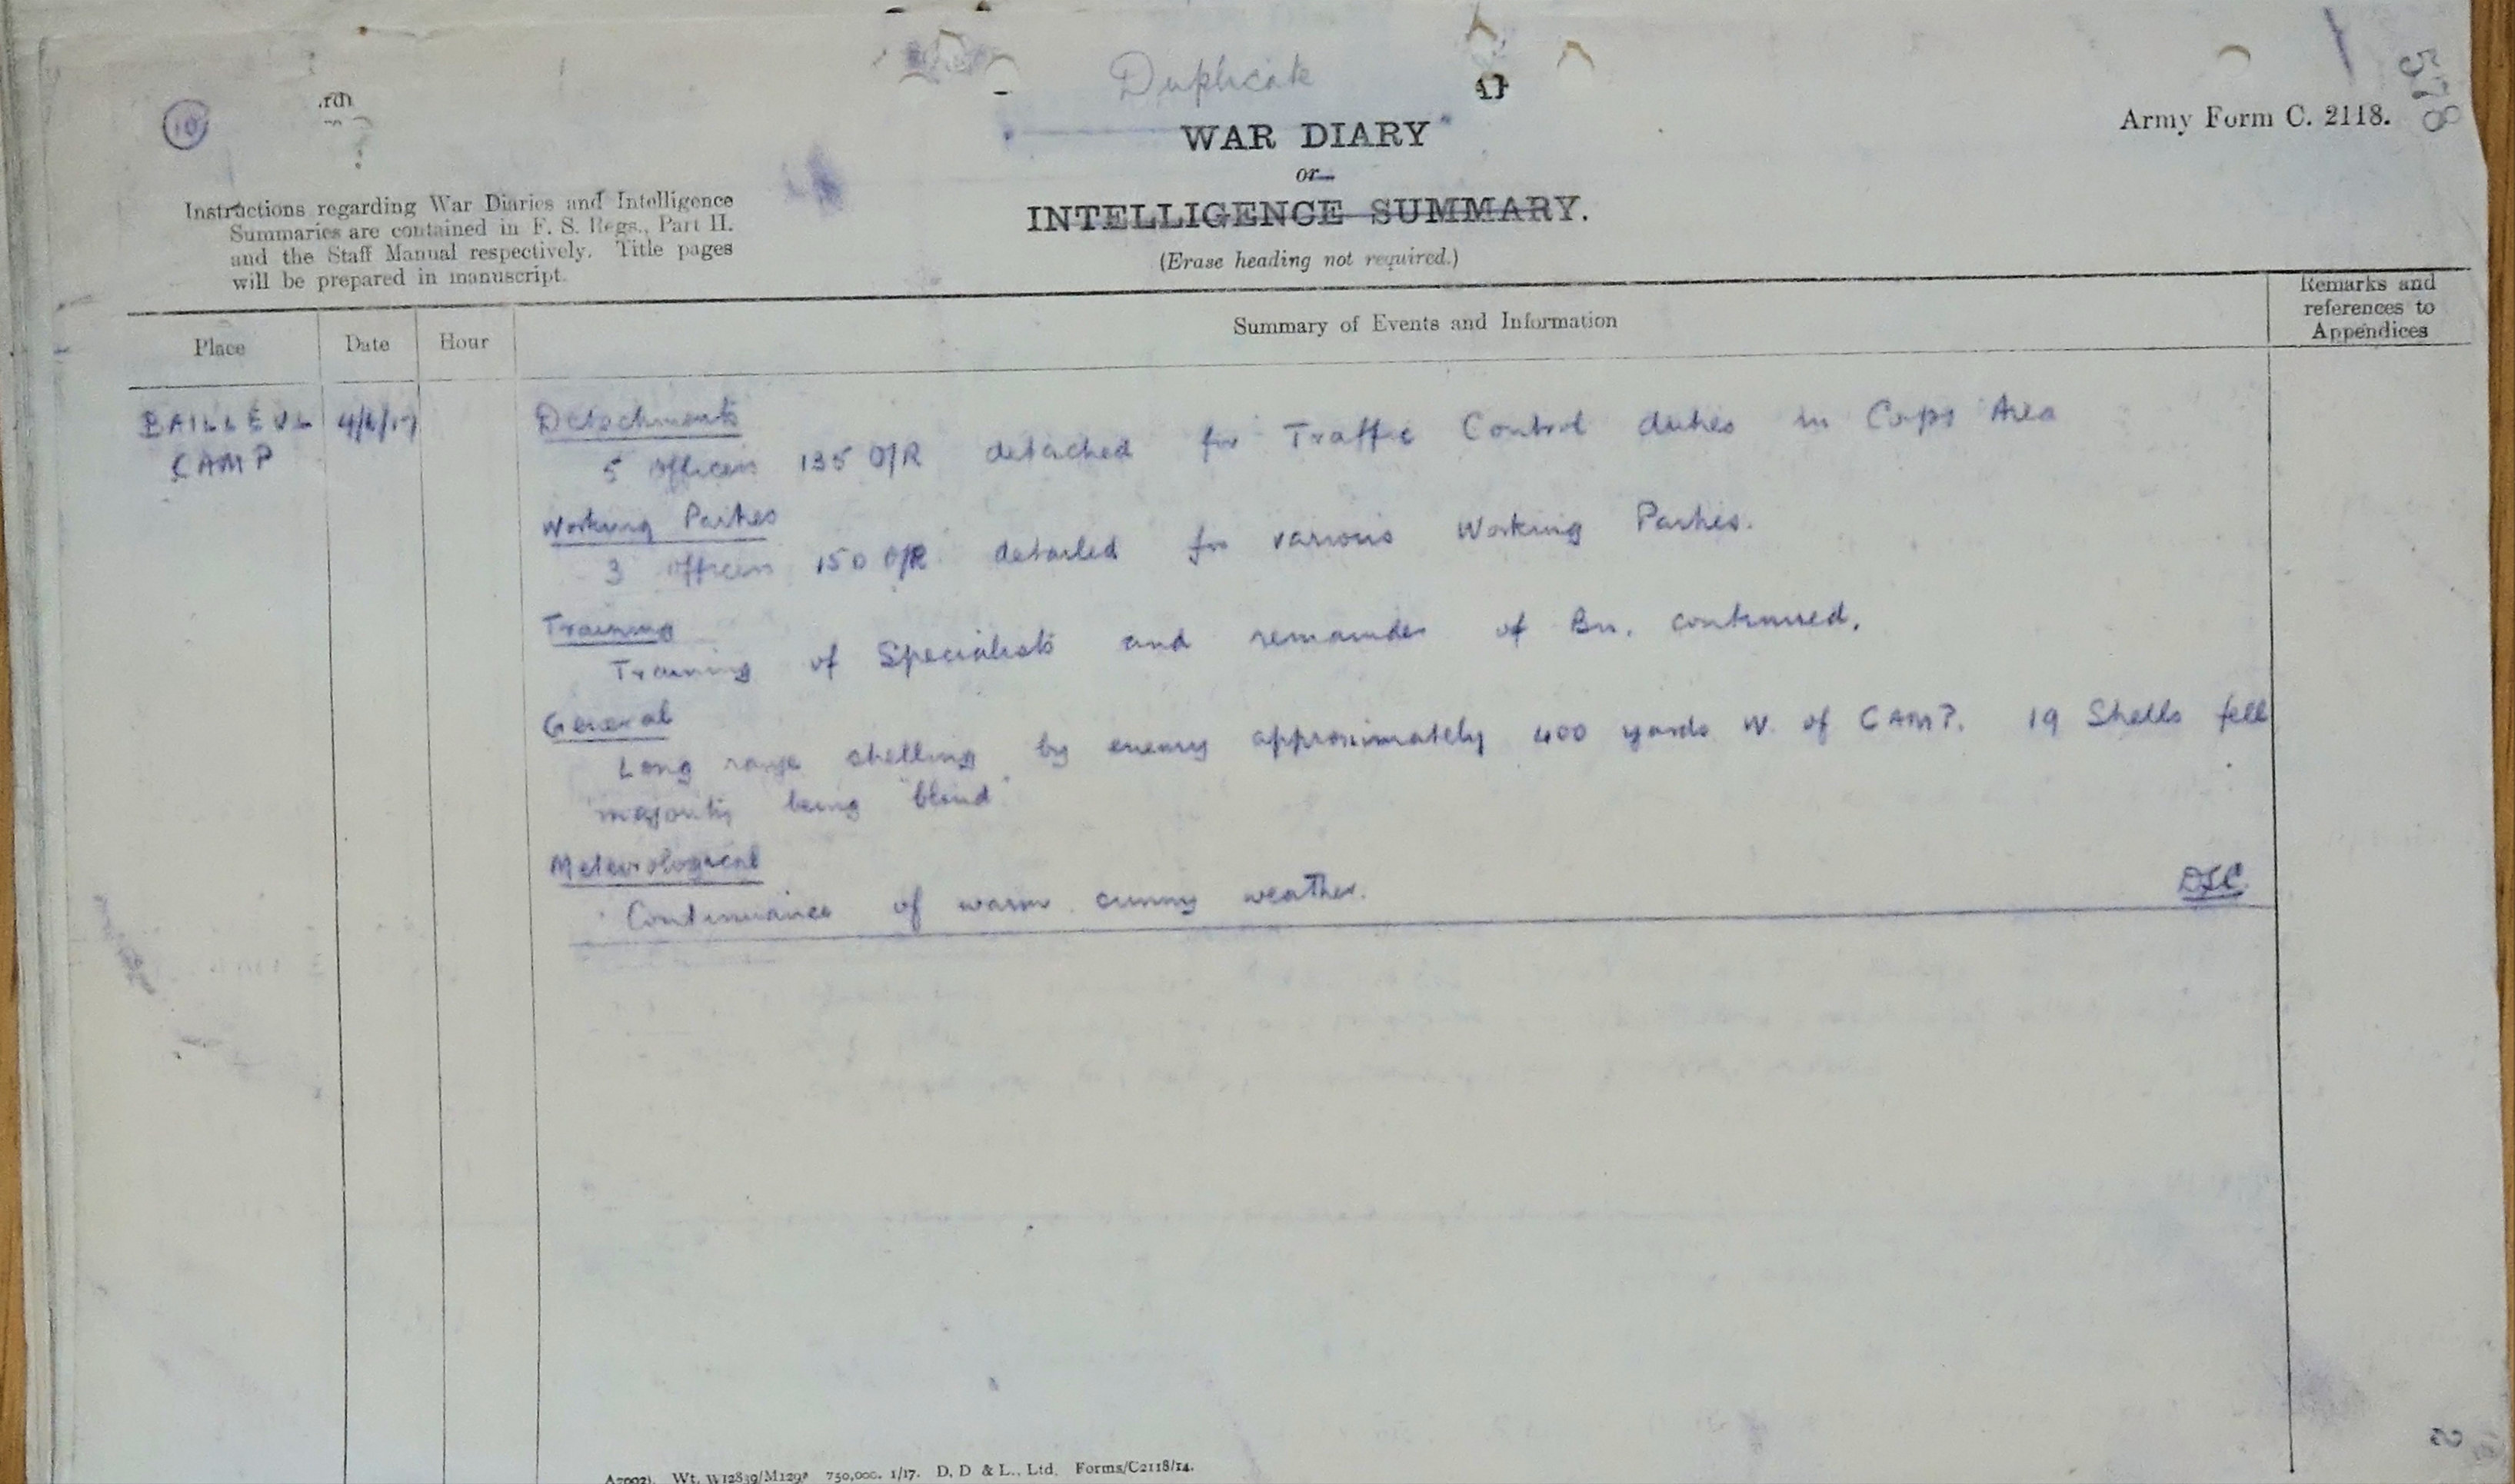 Duplicate
10
578
Army Form C. 2118.
WAR DIARY
or
INTELLIGENCE SUMMARY.
(Erase heading not required.)
Instructions regarding War Diaries and Intelligence
Summaries are contained in F. S. Regs., Part II.
and the Staff Manual respectively. Title pages
will be prepared in manuscript.
Place Date Hour Summary of Events and Information Remarks and
references to
Appendices
BAILLEUL 4/6/17
CAMP
Detachments
5 Officers 135 O/R detached for Traffic Control duties in Corps Area
Working Parties
3 Officers 150 O/R detailed for various Working Parties.
Training
Training of Specialists and remainder of Bn. continued.
General
Long range shelling by enemy approximately 400 yards W. of CAMP. 19 Shells fell
majority being "blind"
Meteorological
Continuance of warm sunny weather.
Wt. W12839/M1298 750,000. 1/17. D. D & L., Ltd. Forms/C2118/14.